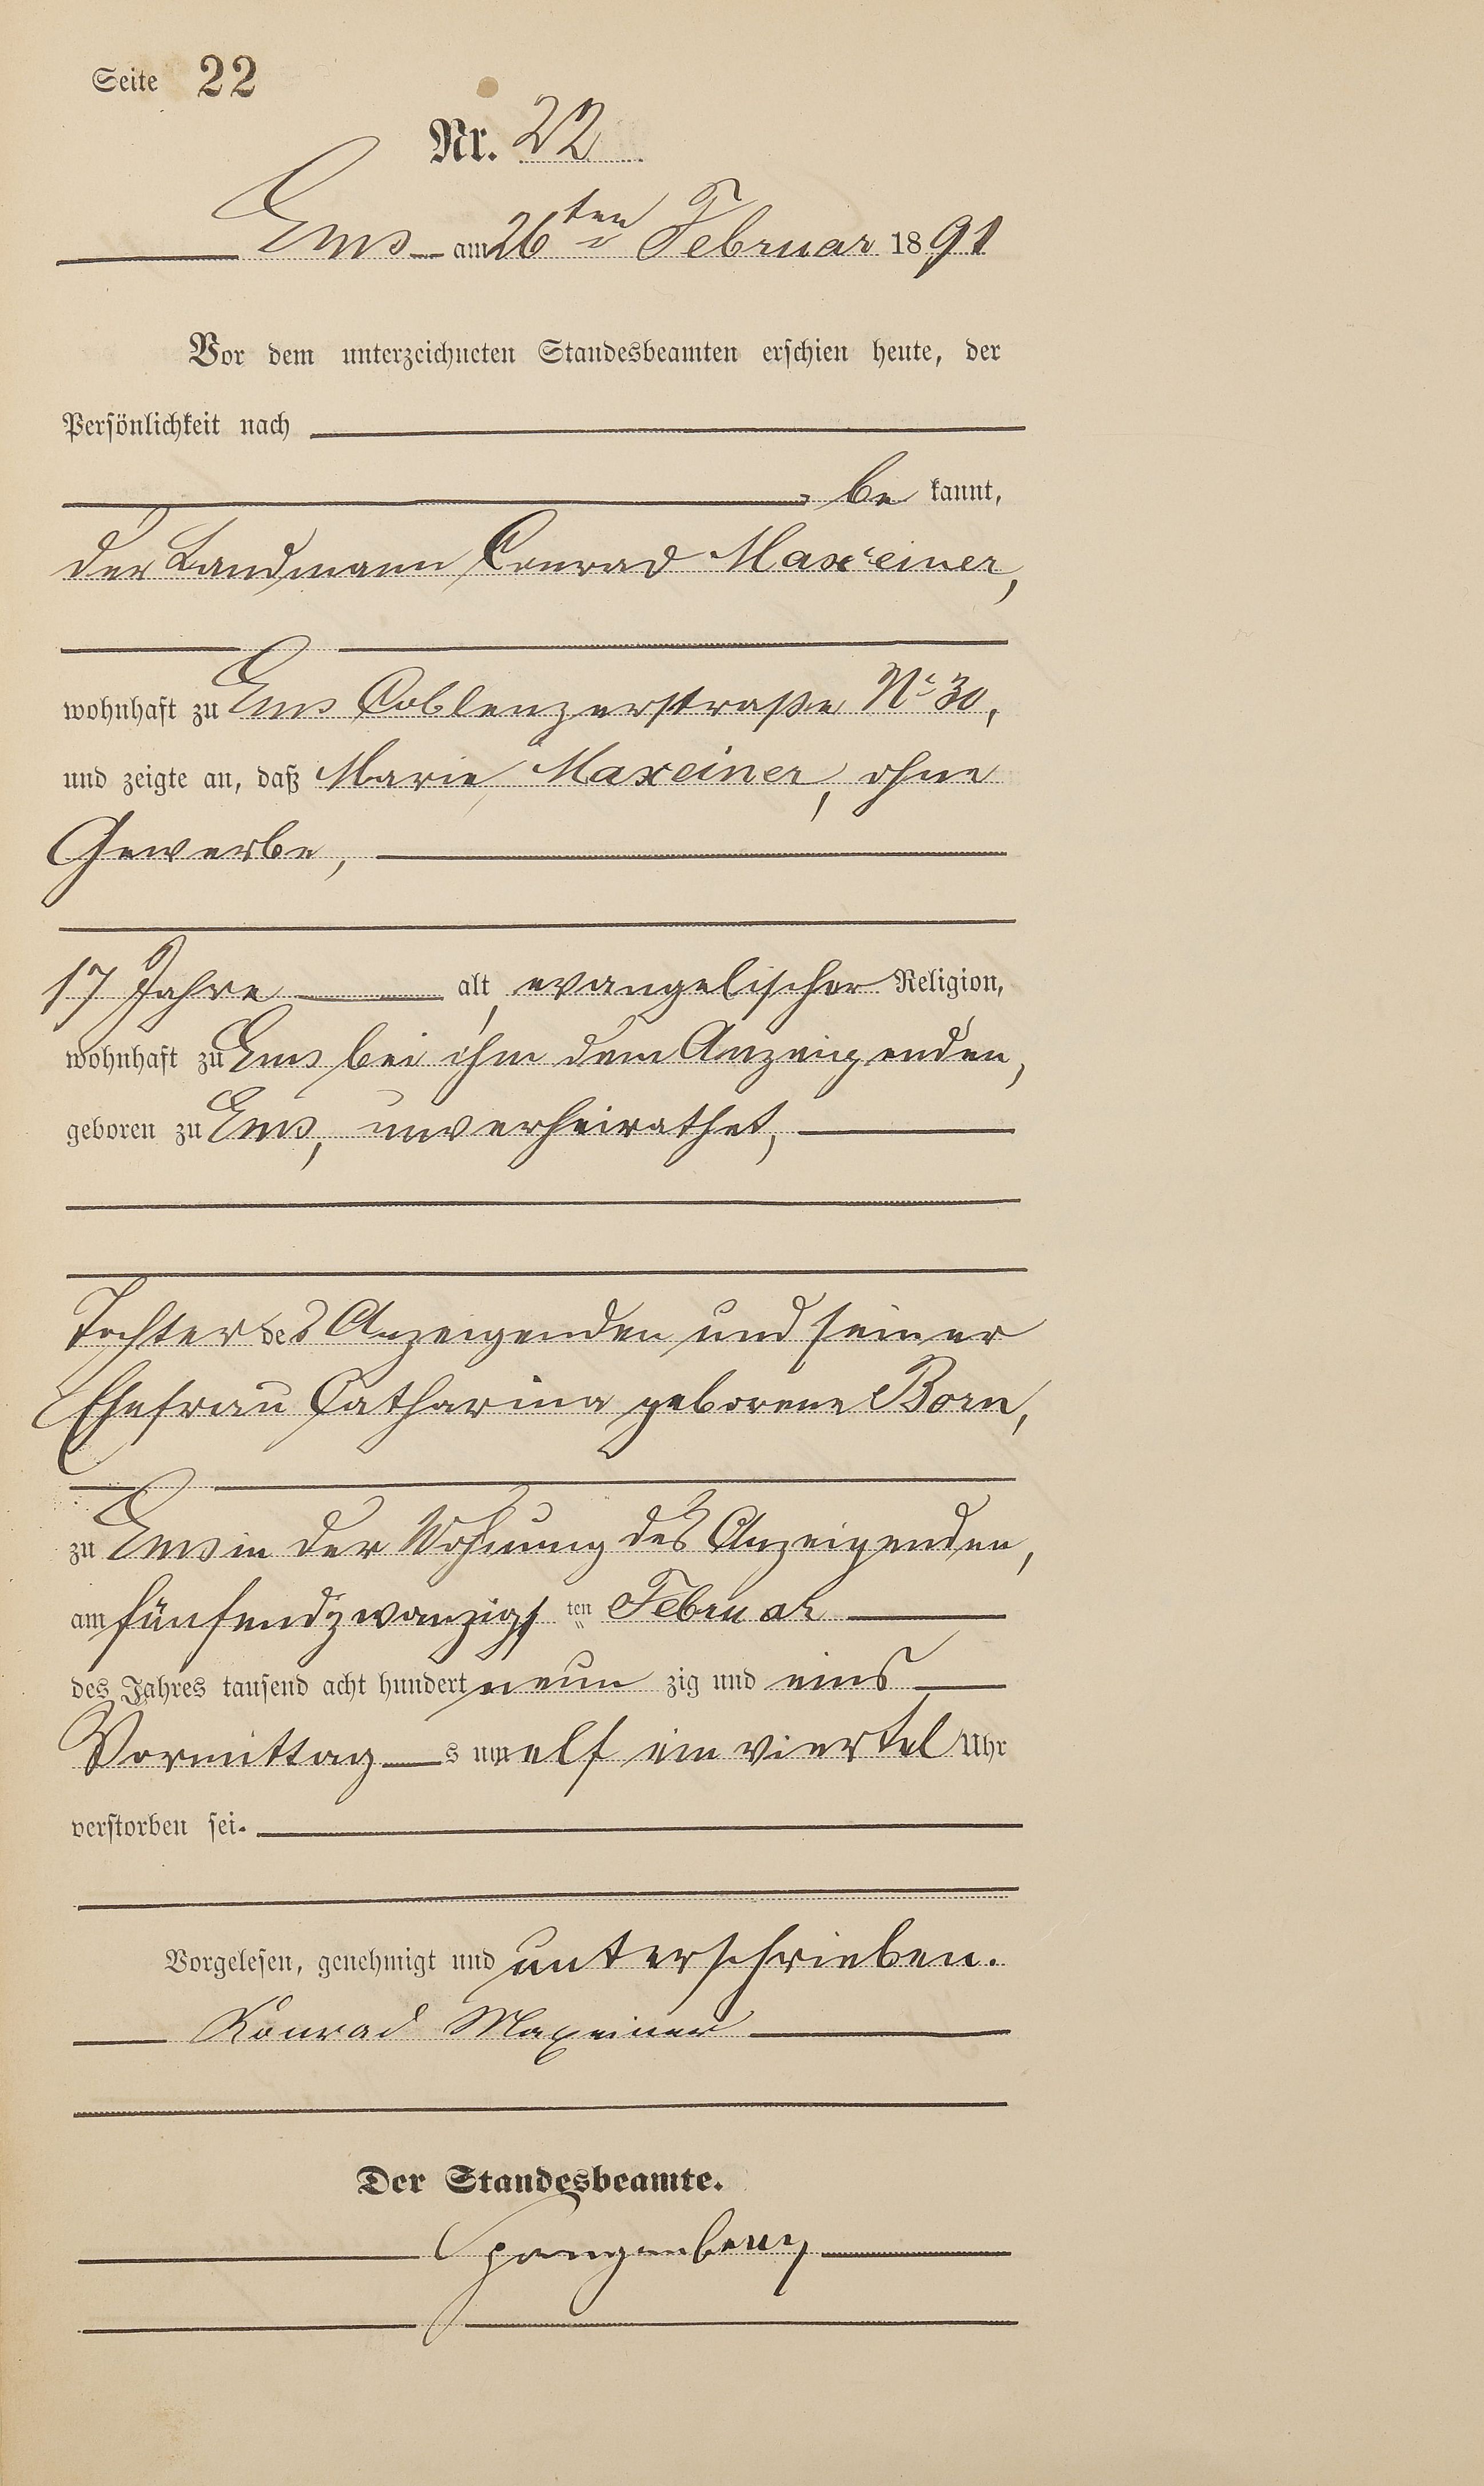 Seite 22
Nr. 22
Ems am 26ten Februar 1891
Vor dem unterzeichneten Standesbeamten erschien heute, der
Persönlichkeit nach
be kannt,
der Landmann Conrad Maxeiner,
wohnhaft zu Ems Coblenzerstraße No 30,
und zeigte an, daß Marie Maxeiner, ohne
Gewerbe,
17 Jahre alt, evangelischer Religion,
wohnhaft zu Ems bei ihm dem Anzeigenden,
geboren zu Ems, unverheirathet,
Tochter des Anzeigenden und seiner
Ehefrau Catharina geborene Born,
zu Ems in der Wohnung des Anzeigenden,
am fünfundzwanzigs ten Februar
des Jahres tausend acht hundert neun zig und eins
Vormittag s um elf ein viertel Uhr
verstorben sei.
Vorgelesen, genehmigt und unterschrieben.
Konrad Maxeiner
Der Standesbeamte.
Spangenberg